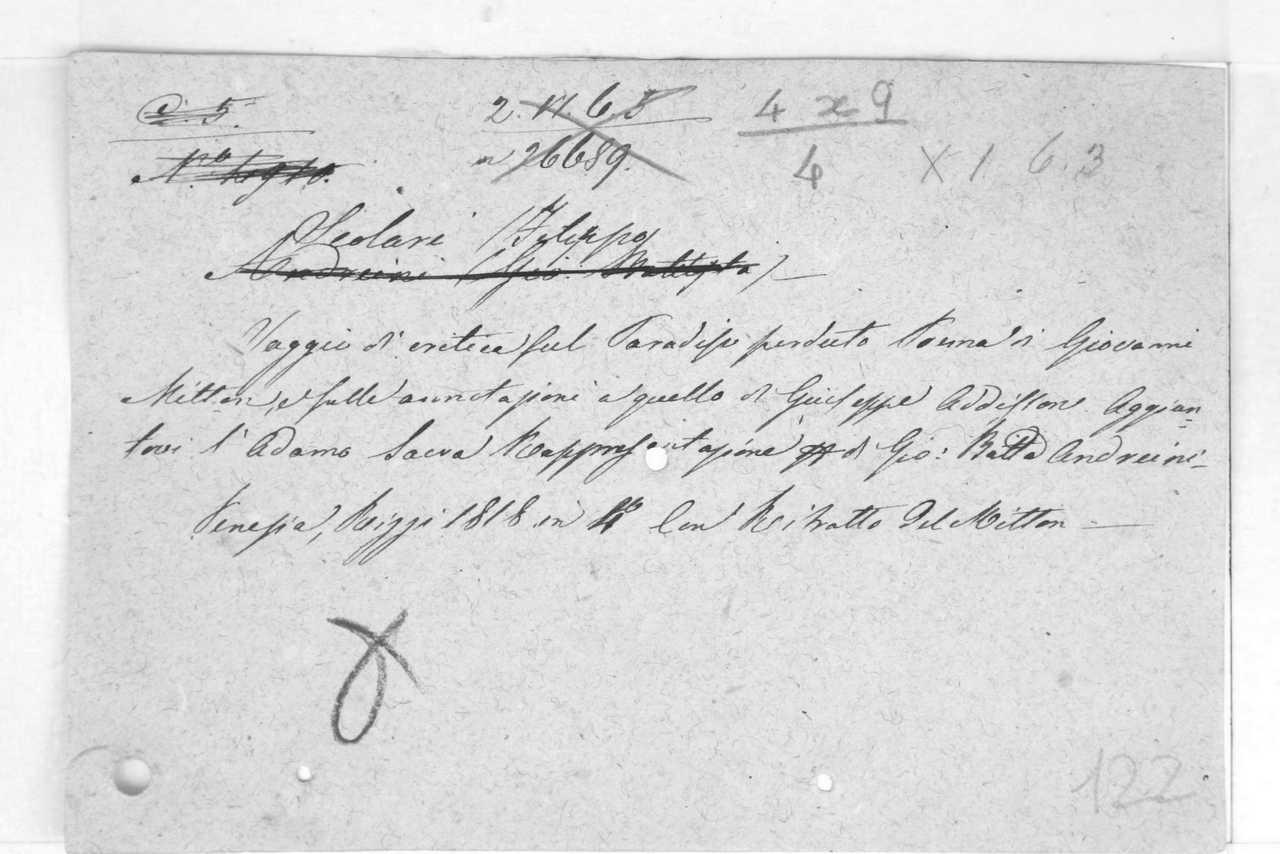 2. 11. 6. 5 4 x 9
n 26689. 4 X 1 6. 3
Scolari Filippo
Andreini (Gio. Battista) —
Saggio di critica sul Paradiso perduto Poema di Giovanni
Milton, e sulle annotazioni a quello di Giuseppe Addisson. Aggiun=
tovi l'Adamo Sacra Rappresentazione di Gio: Batta Andreini —
Venezia, Rizzi 1818 in 4° Con Ritratto del Milton —
122